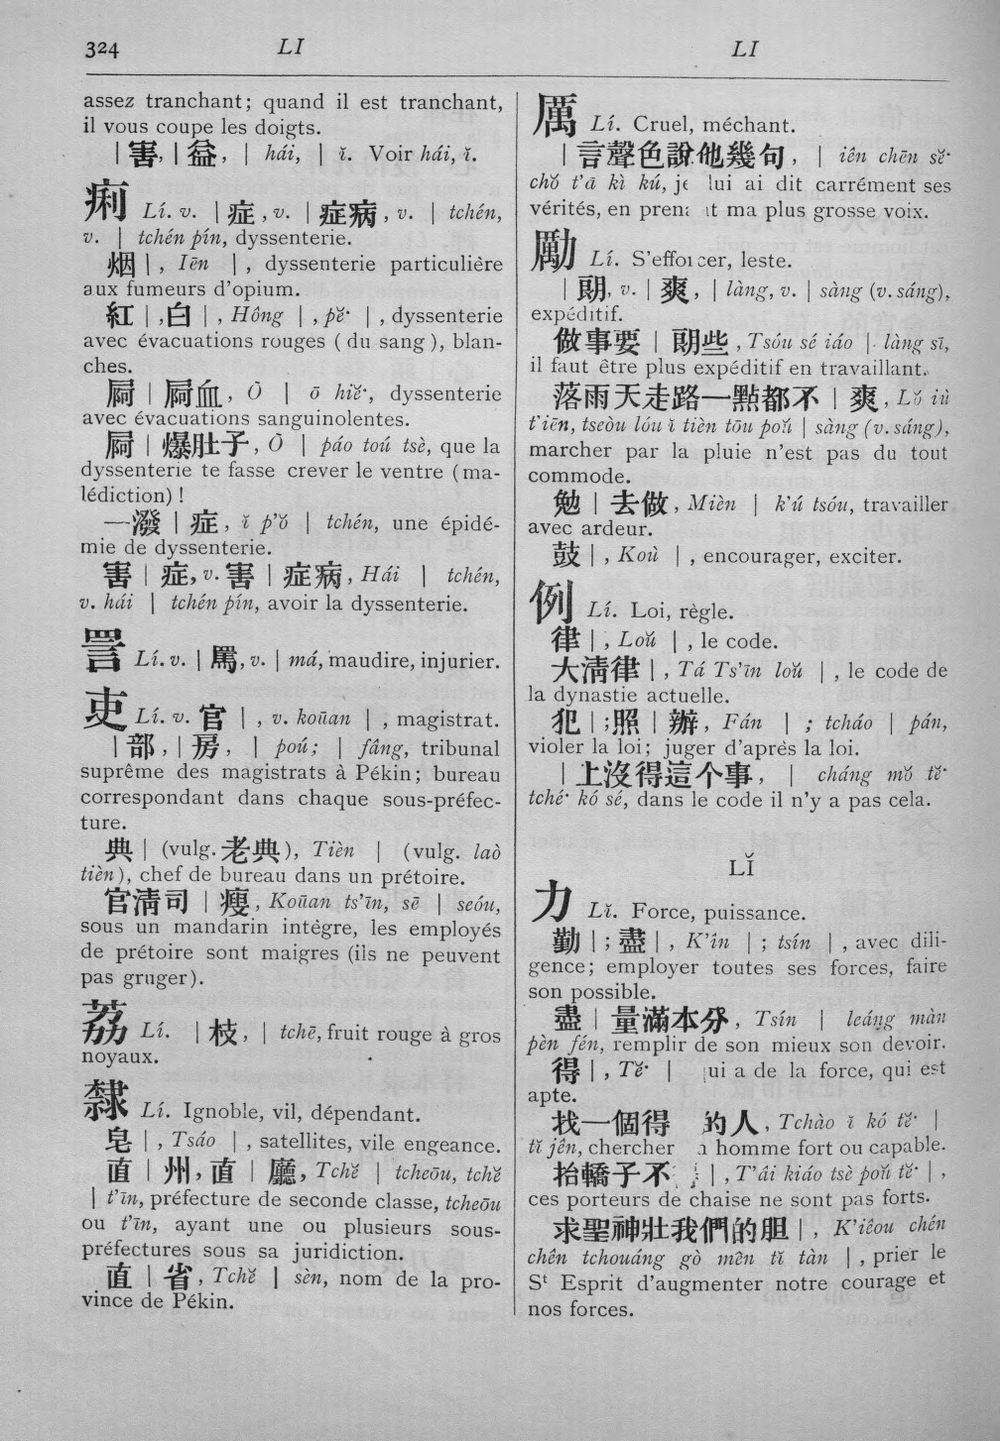 324 LI LI
assez tranchant; quand il est tranchant,
il vous coupe les doigts.
| 害, | 益, | hái, | ĭ. Voir hái, ĭ.
痢 Lí. v. | 症, v. | 症病, v. | tchén,
v. | tchén pín, dyssenterie.
烟 |, Iēn |, dyssenterie particulière
aux fumeurs d'opium.
紅 |, 白 |, Hông |, pĕ· |, dyssenterie
avec évacuations rouges (du sang), blan-
ches.
屙 | 屙血, Ō | ō hiĕ·, dyssenterie
avec évacuations sanguinolentes.
屙 | 爆肚子, Ō | páo toú tsè, que la
dyssenterie te fasse crever le ventre (ma-
lédiction)!
一潑 | 症, ĭ p'ŏ | tchén, une épidé-
mie de dyssenterie.
害 | 症, v. 害 | 症病, Hái | tchén,
v. hái | tchén pín, avoir la dyssenterie.
詈 Lí. v. | 罵, v. | má, maudire, injurier.
吏 Lí. v. 官 |, v. koūan |, magistrat.
| 部, | 房, | poú; | fâng, tribunal
suprême des magistrats à Pékin; bureau
correspondant dans chaque sous-préfec-
ture.
典 | (vulg. 老典), Tièn | (vulg. laò
tièn), chef de bureau dans un prétoire.
官清司 | 瘦, Koūan ts'īn, sē | seóu,
sous un mandarin intègre, les employés
de prétoire sont maigres (ils ne peuvent
pas gruger).
荔 Lí. | 枝, | tchē, fruit rouge à gros
noyaux.
隸 Lí. Ignoble, vil, dépendant.
皂 |, Tsáo |, satellites, vile engeance.
直 | 州, 直 | 廳, Tchĕ | tcheōu, tchĕ
| t'īn, préfecture de seconde classe, tcheōu
ou t'īn, ayant une ou plusieurs sous-
préfectures sous sa juridiction.
直 | 省, Tchĕ | sèn, nom de la pro-
vince de Pékin.
厲 Lí. Cruel, méchant.
| 言聲色說他幾句, | iên chēn sĕ·
chŏ t'ā kì kú, je lui ai dit carrément ses
vérités, en prenant ma plus grosse voix.
勵 Lí. S'efforcer, leste.
| 朗, v. | 爽, | làng, v. | sàng (v. sáng),
expéditif.
做事要 | 朗些, Tsóu sé iáo | làng sī,
il faut être plus expéditif en travaillant.
落雨天走路一點都不 | 爽, Lŏ iù
t'iēn, tseòu lóu ĭ tièn tōu poŭ | sàng (v. sáng),
marcher par la pluie n'est pas du tout
commode.
勉 | 去做, Mièn | k'ú tsóu, travailler
avec ardeur.
鼓 |, Koù |, encourager, exciter.
例 Lí. Loi, règle.
律 |, Loŭ |, le code.
大清律 |, Tá Ts'īn loŭ |, le code de
la dynastie actuelle.
犯 |; 照 | 辦, Fán | ; tcháo | pán,
violer la loi; juger d'après la loi.
| 上沒得這个事, | cháng mŏ tĕ·
tché· kó sé, dans le code il n'y a pas cela.
LĬ
力 Lĭ. Force, puissance.
勤 |; 盡 |, K'în | ; tsín |, avec dili-
gence; employer toutes ses forces, faire
son possible.
盡 | 量滿本分, Tsín | leáng màn
pèn fén, remplir de son mieux son devoir.
得 |, Tĕ· | qui a de la force, qui est
apte.
找一個得 的人, Tchào ĭ kó tĕ· |
tĭ jên, chercher homme fort ou capable.
抬轎子不 |, T'âi kiáo tsè poŭ tĕ· |,
ces porteurs de chaise ne sont pas forts.
求聖神壯我們的胆 |, K'iêou chén
chên tchouáng gò mēn tĭ tàn |, prier le
St Esprit d'augmenter notre courage et
nos forces.